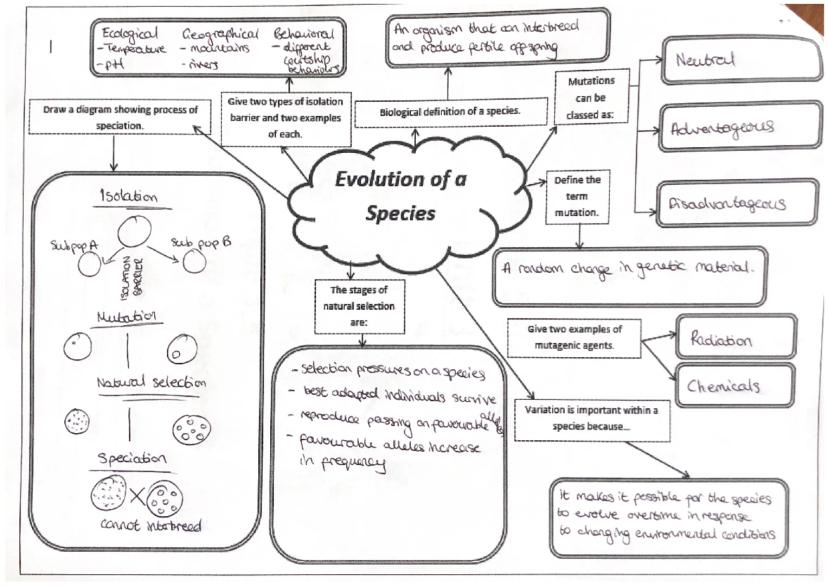 1
Ecological
- Temperature
- pH
Geographical
- mountains
- rivers
Behavioral
- different
courtship
behaviours
An organism that can interbreed
and produce fertile offspring
Neutral
Mutations
can be
classed as:
Draw a diagram showing process of
speciation.
Give two types of isolation
barrier and two examples
of each.
Biological definition of a species.
Advantageous
Evolution of a
Species
Define the
term
mutation.
Disadvantageous
Isolation
Sub pop A
Sub pop B
ISOLATION
BARRIER
Mutation
Natural selection
Speciation
cannot interbreed
A random change in genetic material.
The stages of
natural selection
are:
Give two examples of
mutagenic agents.
Radiation
Chemicals
- selection pressures on a species
- best adapted individuals survive
- reproduce passing on favourable alleles
- favourable alleles increase
in frequency
Variation is important within a
species because...
It makes it possible for the species
to evolve overtime in response
to changing environmental conditions